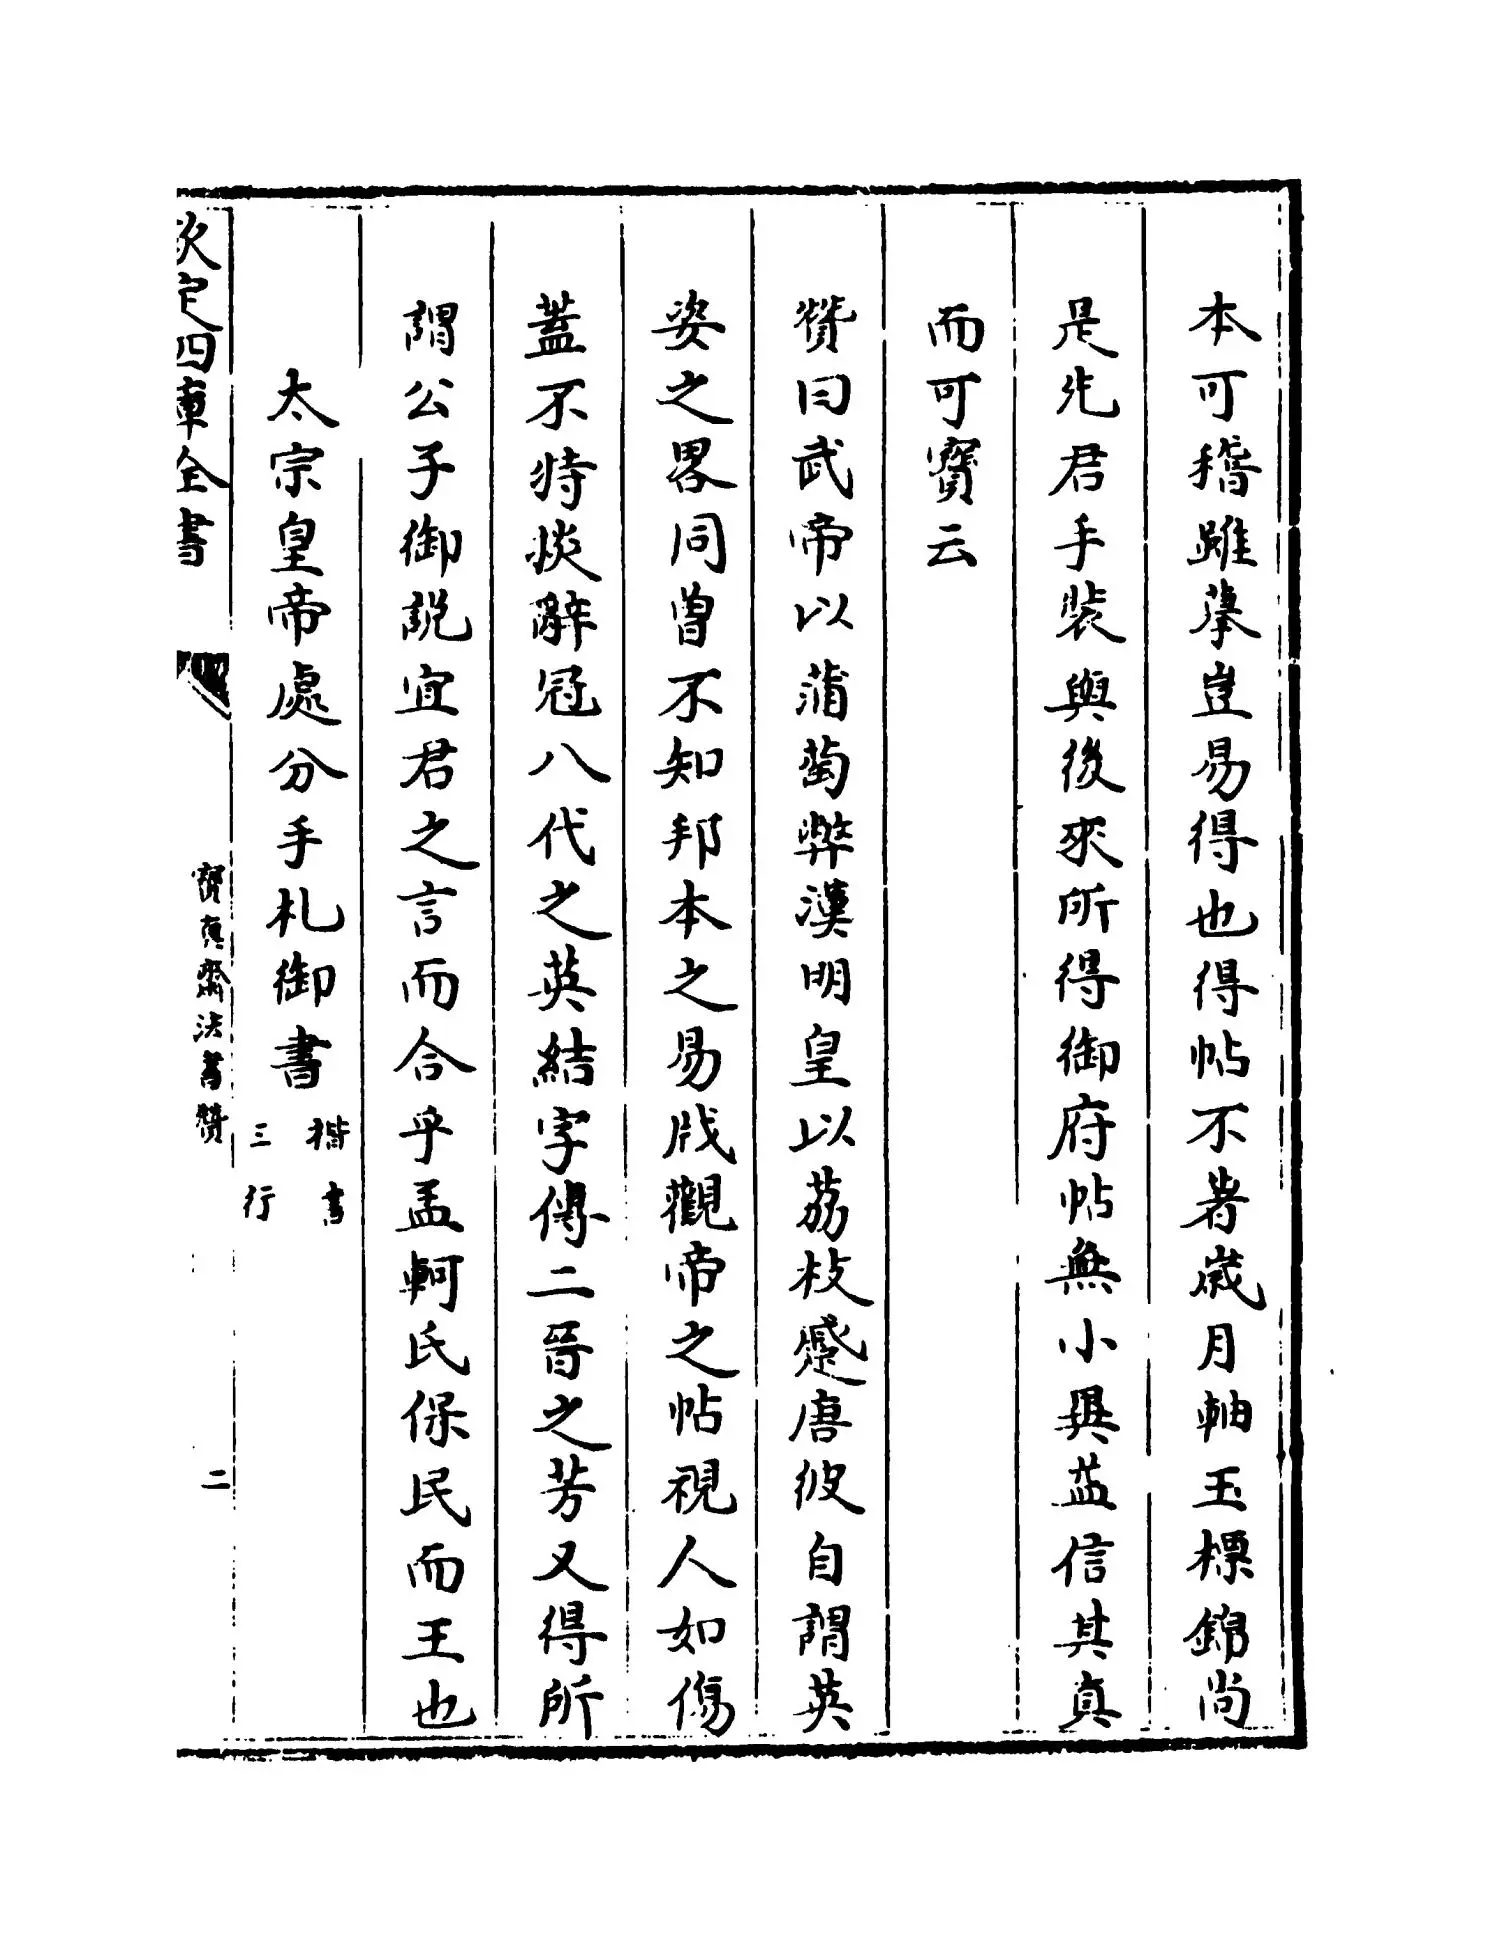 本可稽雖摹豈易得也得帖不著歲月軸玉標錦尚
是先君手裝與後來所得御府帖無小異益信其真
而可寶云
贊曰武帝以蒲萄弊漢明皇以荔枝蹙唐彼自謂英
姿之畧同曽不知邦本之易戕觀帝之帖視人如傷
蓋不特掞辭冠八代之英結字傳二晉之芳又得所
謂公子御説宜君之言而合乎孟軻氏保民而王也
太宗皇帝處分手札御書
楷書
三行
欽定四庫全書
寶真齋法書贊
二